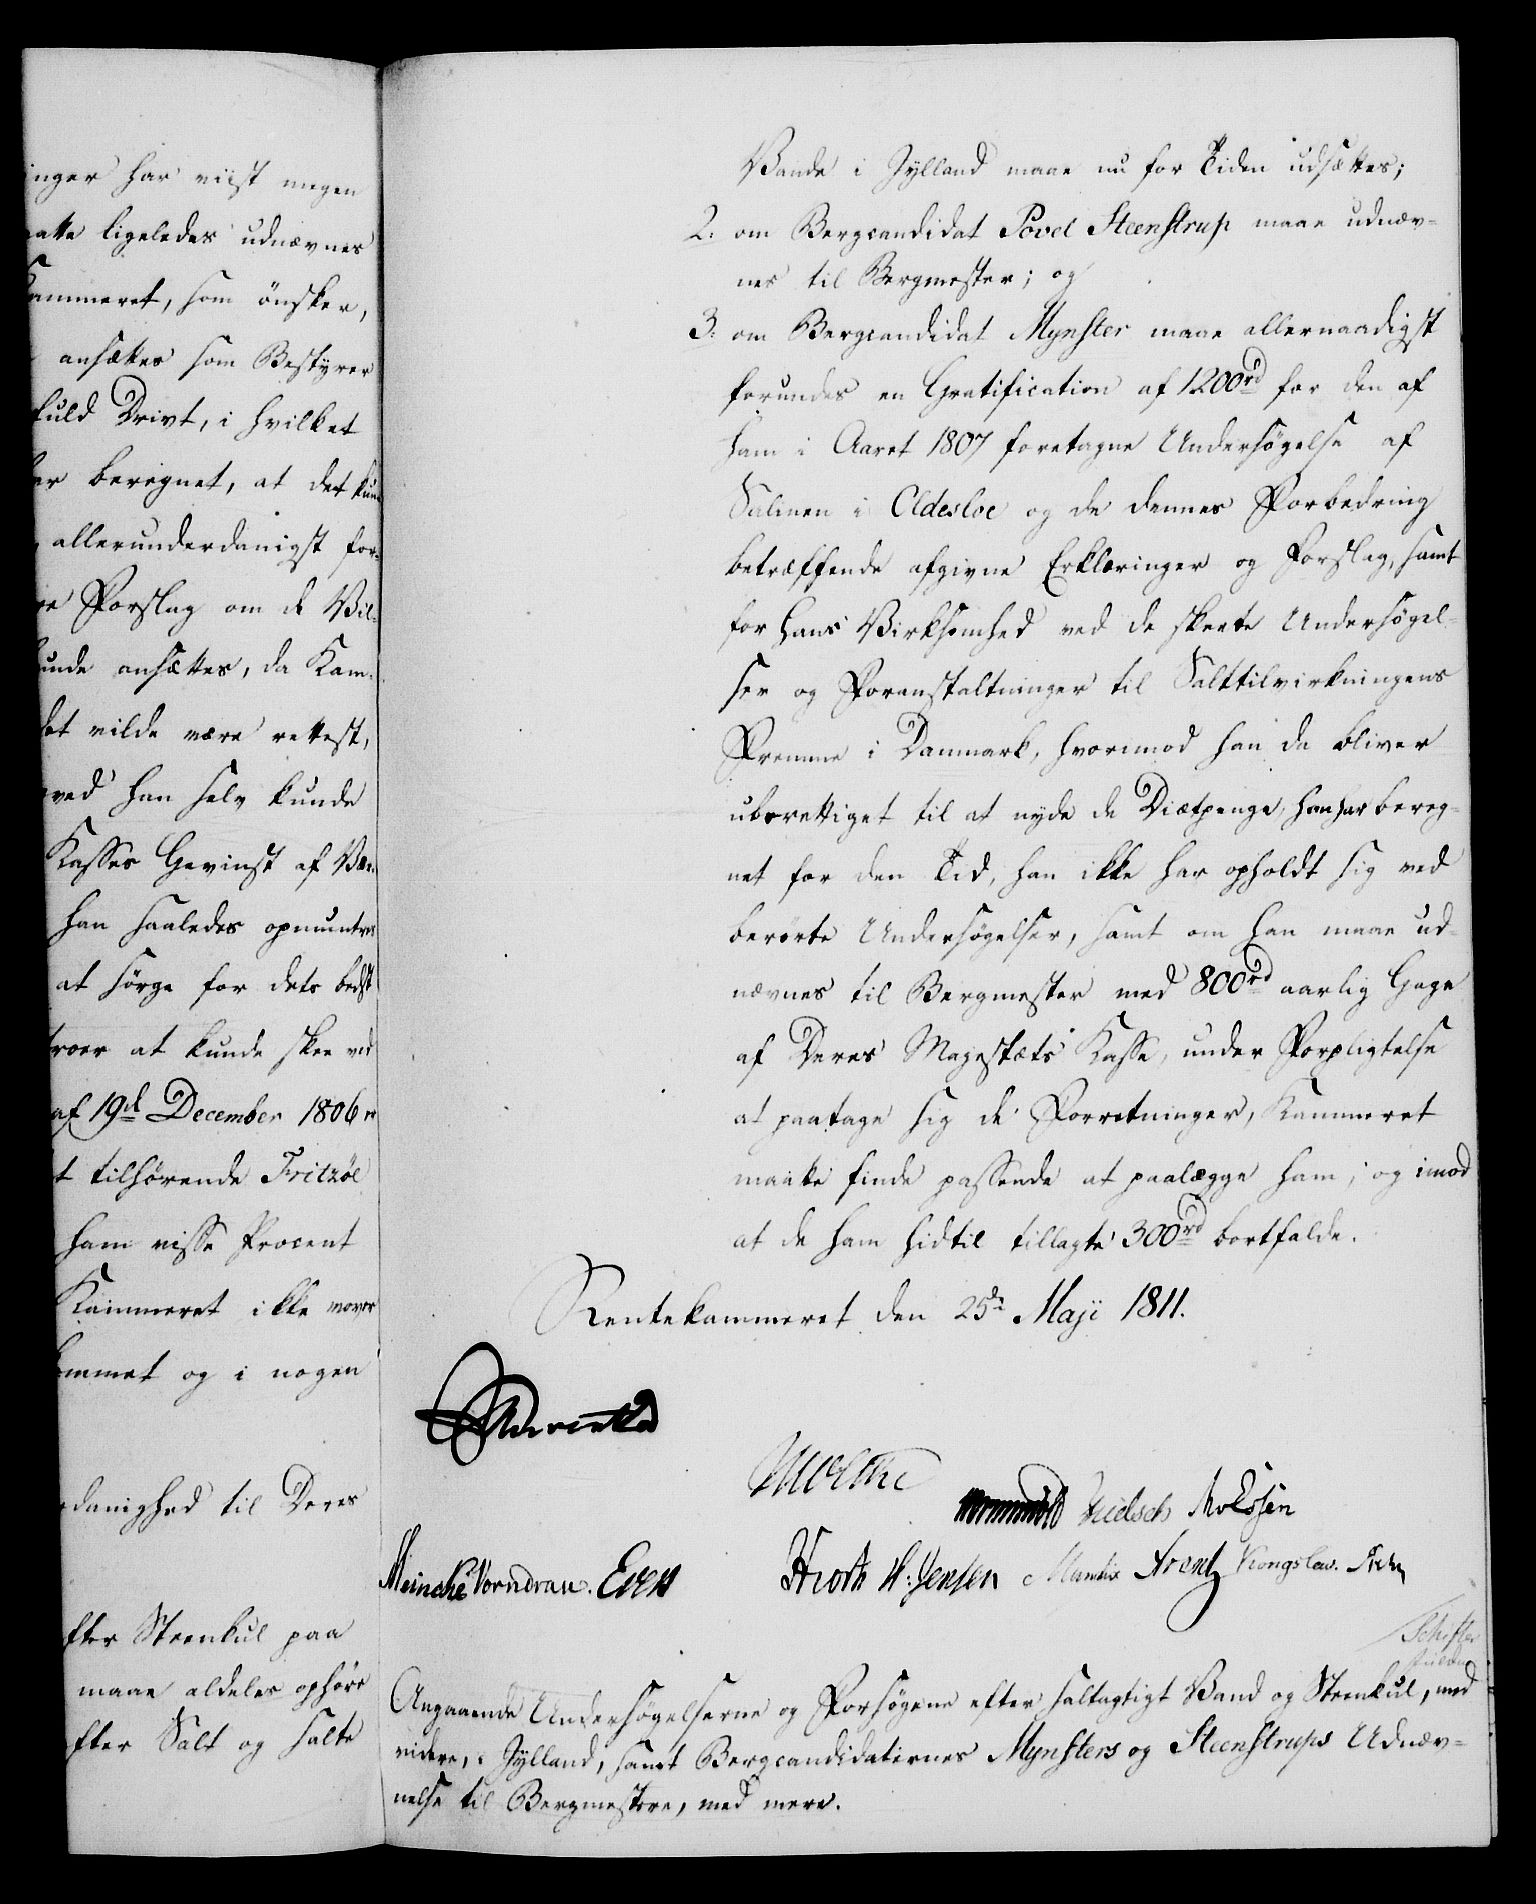 inger har viist megen
atte ligeledes udnævnes
Kammeret, som önsker,
ansættes som Bestyrer
kuld Drivt, i hvilket
er beregnet, at det kun
allerunderdanigst for-
re Forslag om de Vil-
kunde ansættes, da Kam-
det vilde være rettest,
ved han selv kunde
Kasses Gevinst af Vær
han saaledes opmuntres
at sörge for dets bedst
troer at kunde skee ved
af 19de December 1806 er
t tilhørende Fritzöe
ham visse Procent
Kammeret ikke tvivler
ommet og i nogen
danighed til Deres
fter Steenkul paa
maae aldeles ophöre
fter Salt og salte
Vande i Jylland maae nu for Tiden udsættes;
2. om Bergcandidat Povel Steenstrup maae udnæv-
nes til Bergmester; og
3. om Bergcandidat Mynster maae allernaadigst
forundes en Gratification af 1200rd for den af
ham i Aaret 1807 foretagne Undersögelse af
Salinen i Oldesloe og de dennes Forbedring
betræffende afgivne Erklæringer og Forslag, samt
for hans Virksomhed ved de skeete Undersögel-
ser og Foranstaltninger til Salttilvirkningens
Fremme i Danmark, hvorimod han da bliver
uberettiget til at nyde de Diætpenge, han har bereg-
net for den Tid, han ikke har opholdt sig ved
berörte Undersögelser, samt om han maae ud-
nævnes til Bergmester med 800rd aarlig Gage
af Deres Majestæts Kasse, under Forpligtelse
at paatage sig de Forretninger, Kammeret
maatte finde passende at paalægge ham; og imod
at de ham hidtil tillagte 300rd bortfalde.
Rentekammeret den 25de Maji 1811.
Moltke
Wormskiold
Meinche Vorndran. Evers
Hiorth H: Jensen Arentz Kongslew.
Schifter
Angaaende Undersögelserne og Forsögene efter saltagtigt Vand og Steenkul, med
videre, i Jylland, samt Bergcandidaternes Mynsters og Steenstrups Udnæv-
nelse til Bergmestere, med mere.